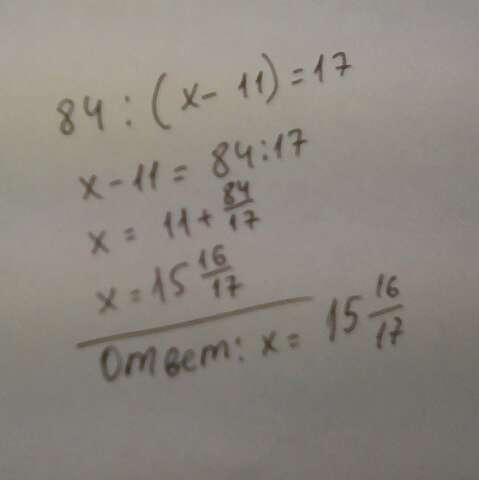 84 : (x - 11) = 17
x - 11 = 84 : 17
x = 11 + 84/17
x = 15 16/17
Ответ: x = 15 16/17